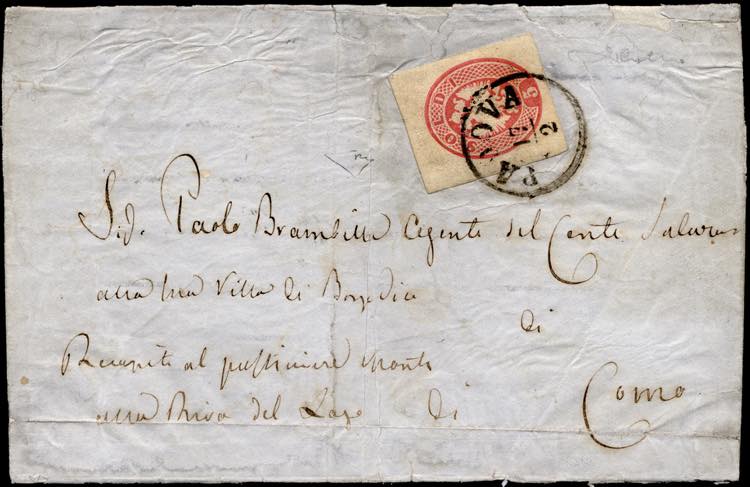 PADOVA
17
2
SOLDI 5
Sig. Paolo Brambilla Agente del Conte
alla sua Villa di
di
Recapito al
alla Riva del Lago di Como